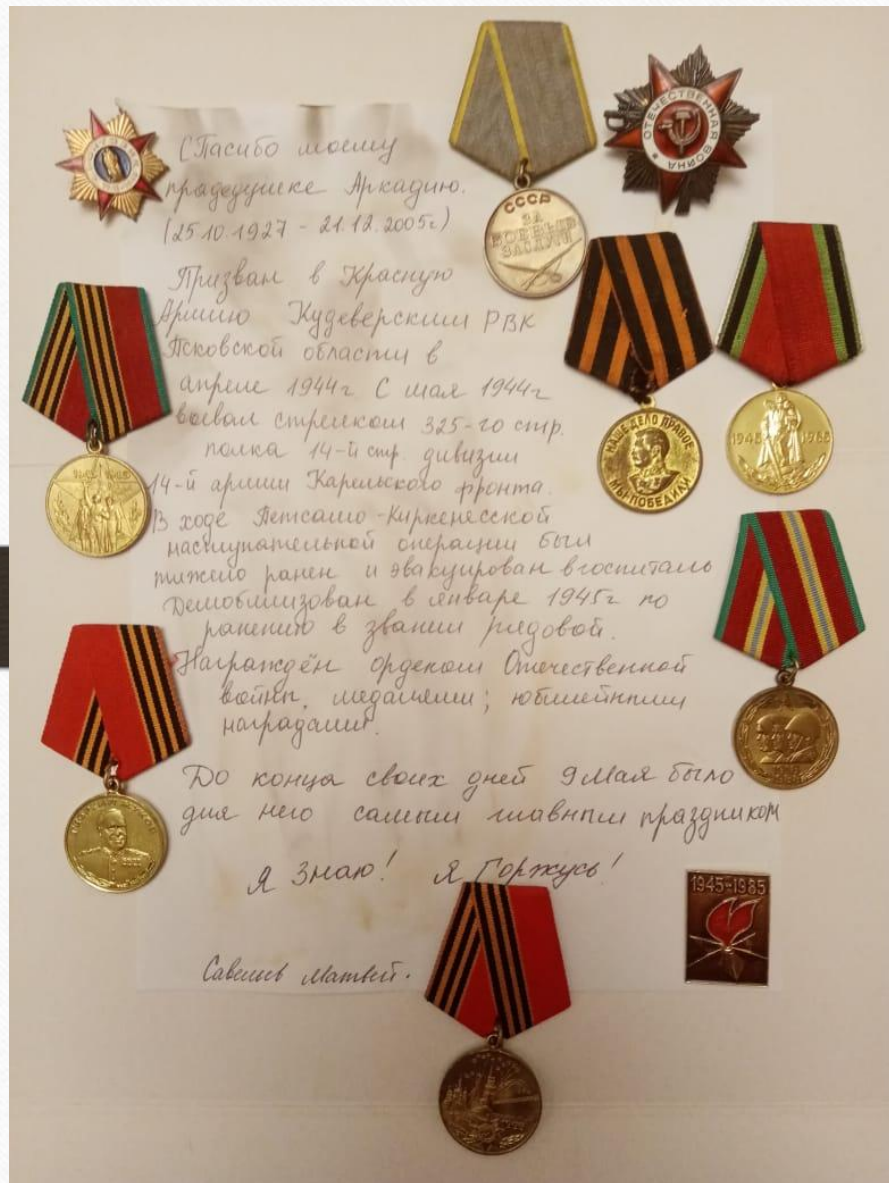 Спасибо моему
прадедушке Аркадию.
(25.10.1927 - 21.12.2005г)
Призван в Красную
Армию Кудеверским РВК
Псковской области в
апреле 1944г С мая 1944г
воевал стрелком 325-го стр.
полка 14-й стр. дивизии
14-й армии Карельского фронта.
В ходе Петсамо-Киркенесской
наступательной операции был
тяжело ранен и эвакуирован в госпиталь
Демобилизован в январе 1945г по
ранению в звании рядовой.
Награждён орденом Отечественной
войны, медалями; юбилейными
наградами.
До конца своих дней 9 Мая было
для него самым главным праздником
Я Знаю! Я Горжусь!
Матвей.
СССР
ЗА
БОЕВЫЕ
ЗАСЛУГИ
ОТЕЧЕСТВЕННАЯ ВОЙНА
НАШЕ ДЕЛО ПРАВОЕ
МЫ ПОБЕДИЛИ
1945 1965
1945-1985